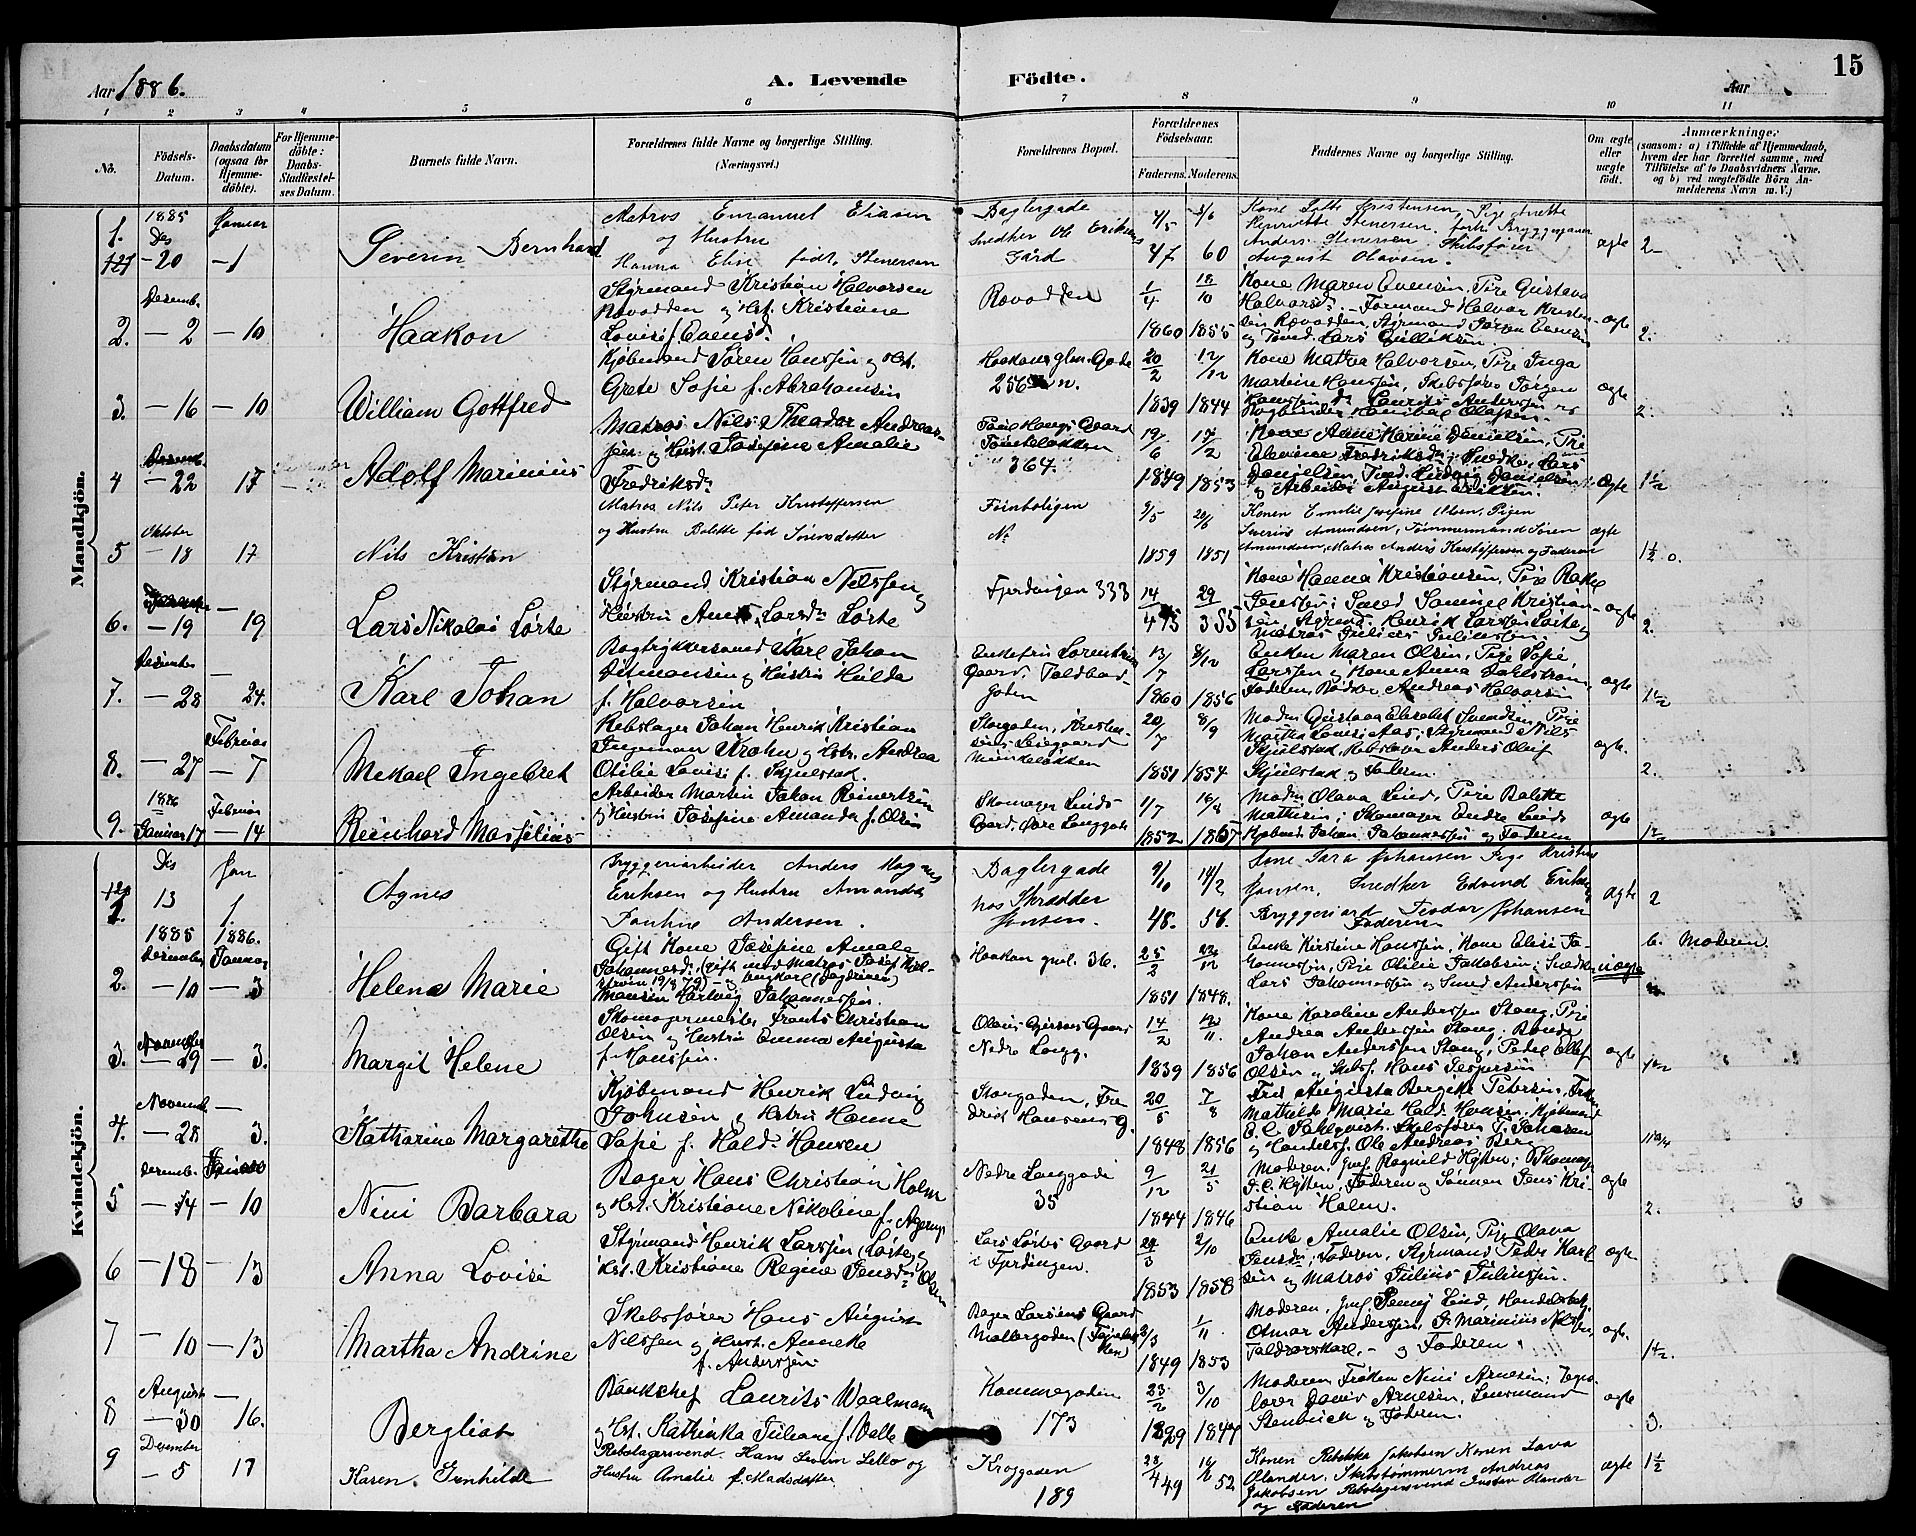 Aar 1886.
A. Levende Födte.
Aar
15
1 2 3 4 5 6 7 8 9 10 11
No.
Födsels-Datum.
Daabsdatum (ogsaa for Hjemme-döbte).
For Hjemme-döbte: Daabs-Stadfæstel-ses Datum.
Barnets fulde Navn.
Forældrenes fulde Navne og borgerlige Stilling. (Næringsvei.)
Forældrenes Bopæl.
Forældrenes Födselsaar.
Faderens. Moderens.
Faddernes Navne og borgerlige Stilling.
Om ægte eller uægte födt.
Anmærkninger (saasom: a) i Tilfælde af Hjemmedaab, hvem der har forrettet samme, med Tilföielse af to Daabsvidners Navne. og b) ved uægtefödte Börn An-melderens Navn m. V.)
Mandkjön.
1.
1885 Des 20
Januar 1
Severin Bernhard
Matros Emanuel Eliasen
og Hustru
Hanna Elise født Stenersen
Baglergade
Snedker Ole Eriksens
Gård
4/5 47
5/6 60
Henriette Stenersen
Anders Stenersen Skibsfører
August Olavsen.
ægte
2
2.
Desemb. 2
10
Haakon
Styrmand Kristian Halvorsen
Røvodden og Hst. Kristiane
Lovise f. Evensd.
Røvodden
1/4 1860
18/10 1855
Kone Maren Evensen, Pige Gustava
Halvorsd. Formand Halvor Kristen-
sen Røvodden, Styrmand Jørgen Evensen
og Tømd. Lars Gulliksen.
ægte
2.
3.
16
10
William Gottfred
Kjøbmand Søren Hanssen og Hst.
Grete Sofie f. Abrahamsen
Haakons glm. Gade
256 n.
20/2 1839
12/12 1844
Kone Mathea Halvorsen, Pige Inga
Martine Hanssen, Skibsfører Jørgen
Hanssen, Laurits Anderssen og
Bogbinder Hanibal Olassen.
ægte
2
4
Desemb. 22
17
Adolf Marinius
Matros Nils Theodor Andreas-
sen og Hust. Josefine Amalie
Fredriksd.
364.
19/6 1849
17/2 1853
Kone Anne Marine Danielsen, Pige
Elevine Fredriksd., Snedker Lars
Danielsen, Tømd. Ludvig Danielsen
og Arbeider August Eriksen.
ægte
1½
5
Oktober 18
17
Nils Kristian
Matros Nils Peter Kristoffersen
og Hustru Bolette fød Sørensdatter
Føinboligen
No
9/5 1859
20/6 1851
Konen Emilie Josefine Olsen, Pigen
Severine Amundsen, Tømmermand Søren
Amundsen, Matros Anders Kristoffersen og Faderen
ægte
1½ 0.
6.
19
19
Lars Nikolai Lørte
Styrmand Kristian Nilssen og
Hustru Anne Larsdr Lørte
Fjerdingen 333
14/4 45
29/3 55
Kone Hanna Kristiansen, Pige Rakel
Jenssen; Smed Samuel Kristian-
sen, Styrmd. Henrik Larssen Lørte og
Matros Julius Juliussen.
ægte
2.
7.
Desember 28
24.
Karl Johan
Bogtrykkersvend Karl Johan
Ditmansen og Hustru Hulda
f. Halvorsen
Enkefru Lorentsens
Gaard, Toldbod-
gaden
13/7 1860
8/12 1856
Enken Maren Olsen, Pige Sofie
Larssen og Kone Anna Dahlstrøm,
Faderen, Rødker Andreas Halvorsen
ægte
1½
8.
27
Februar 7
Mikael Ingebret
Rebslager Johan Henrik Kristian
Ingeman Krohn og Hstr. Andrea
Otilie Lovise f. Skjulstak.
Storgaden, Kristen-
sens Leiegaard
Munkeløkken
20/7 1851
8/9 1854
Moder Gustava Elisabet Svendsen, Pige
Martha Lovise Aas; Styrmand Nils
Skjulstak, Rebslager Anders Oluf
Skjulstak og Faderen.
ægte.
2.
9.
1886 Januar 17
Februar 14
Reinhard Massilius
Arbeider Martin Johan Reinertsen
og Hustru Josefine Amanda f. Olsen
Skomager Linds
Gaard, Øvre Langgade
1/7 1852
16/8 1857
Moder Olava Lind, Pige Bolette
Mathisen; Skomager Endre Lind
Kjøbmd. Johan Johannessen og Faderen
ægte
1½
Kvindekjön.
1.
Des 13
Jan 1.
Agnes
Bryggeriarbeider Anders Magnus
Eriksen og Hustru Amanda
Pauline Andersen
Baglergade
hos Skrædder
Jensen.
9/10 48.
14/2 56.
Kone Sara Johansen Pige Kristine
Hansen, Snedker Edvind Eriksen
Bryggeriarb. Teodor Johansen
Faderen
ægte
2
2.
1885 Desember 10
1886. Januar 3
Helena Marie
Gift Kone Josefine Amalie
Johannesd. (gift med Matros Josef Niel-
sen 19/8 79) og ungkarl (Dagdriver)
Maurin Hartvig Johannessen.
Haakon gml. 36.
25/2 1851
22/12 1848.
Enke Kirstine Hanssen, Kone Elise Jo-
hannessen, Pige Otilie Jakobsen; Snedker
Lars Johannessen og Smed Anderssen
uægte
b. Moderen.
3.
November 29
3.
Margit Helene
Skomagermester Frants Christian
Olsen og Hustru Emma Augusta
f. Hanssen.
Olaus Gjersøes Gaard
Nedre Langg.
14/2 1839
12/11. 1856
Kone Karoline Anderssen Stang, Pige
Andrea Anderssen Stang. Bonde
Johan Anderssen Stang, Peder Ellef
Olsen og Skibsf. Hans Jespersen
ægte
1½
4.
Novemb. 28
3.
Katharine Margarethe
Kjøbmand Henrik Ludvig
Johnsen og Hstru Hanne
Sofie f. Hald-Hansen
Storgaden, Fre-
drik Hansens G.
20/5 1848
7/8 1856
Fru Augusta Bergitte Petersen, Frøken
Mathilde Marie Hald-Hansen, Kjøbmand
E. C. Dahlqvist. Skibsfører J. Johnsen
og Handelsf. Ole Andreas Berg
5
Desemb. 14
Januar 10
Nini Barbara
Bager Hans Christian Holm
og Hst. Kristiane Nikoline f. Agerup
Nedre Langgade
35
9/12 1844
21/5 1846
Moderen, Jmf. Ragnild Hytten; Skomager
J. C. Hytten, Faderen og Sønnen Jens Kri-
stian Holm.
ægte
2.
6
18
13
Anna Lovise
Styrmand Henrik Larssen (Lørte) og
Hst. Kristiane Regine Jensd. Olsen
Lars Lørtes Gaard
i Fjerdingen.
1853
2/10 1858
Enke Amalie Olsen, Pige Olava
Jensd.; Faderen, Styrmand Peder Karl-
sen og Matros Julius Juliussen.
ægte
7
10
13
Martha Andrine
Skibsfører Hans August
Nilssen og Hust. Anneke
f. Anderssen
Bager Larsens Gaard
Møllergaden
2/3 1849
1/11. 1853
Moderen, Jmf. Jenny Lind, Handelsbetj.
Otmar Anderssen, Fr. Marinius Nilssen,
Toldrorskarl, og Faderen
ægte.
1½.
8
August 30
16.
Bergliot
Bankchef Laurits Waalmann
og Hst. Kathinka Juliane f. Valle
Kammegaden
173
23/2 1829
3/10 1847
Moderen Frøken Nini Arnesen; Toppe-
lærer Daniel Arnesen, Lensmand
Stenbuch og Faderen.
ægte
3.
9
Desember 5
17
Karen Gunhilde
Rebslagersvend Hans Severin Lillo og
Hustru Amalie f. Madsdatter
Kroggaden
189
28/4 49
19/6 52
Konen Rebekka Jakobsen Konen Lava
Olander, Skibstømmerm Andreas
Jakobsen Rebslagersvend Gustav Olander
og Faderen
ægte
1½